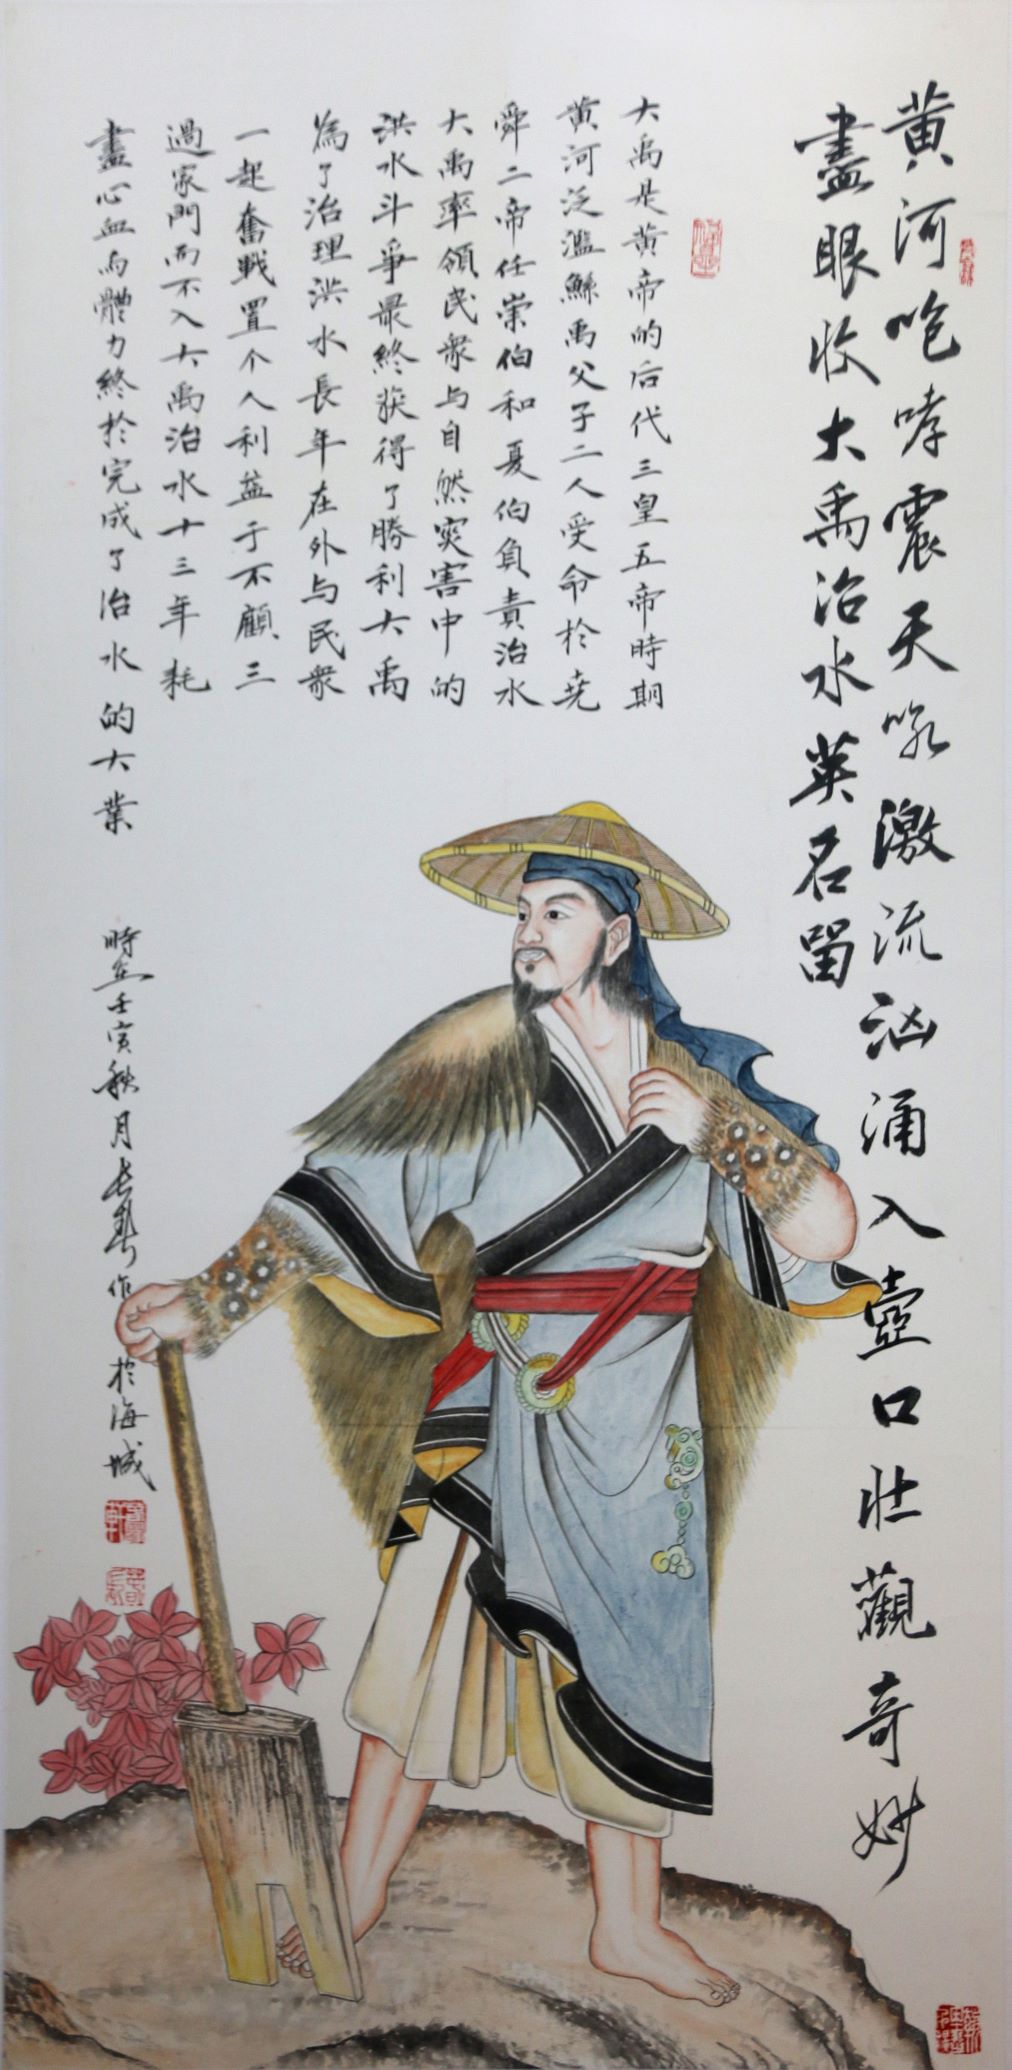 黄河咆哮震天吼激流汹涌入壺口壮觀奇妙
盡眼收大禹治水英名留
大禹是黄帝的后代三皇五帝時期
黄河泛濫鯀禹父子二人受命於尭
舜二帝任崇伯和夏伯負責治水
大禹率領民衆与自然灾害中的
洪水斗爭最終获得了勝利大禹
為了治理洪水長年在外与民衆
一起奮戰置个人利益于不顧三
過家門而不入大禹治水十三年耗
盡心血与體力終於完成了治水的大業
時在壬寅秋月
作於海城